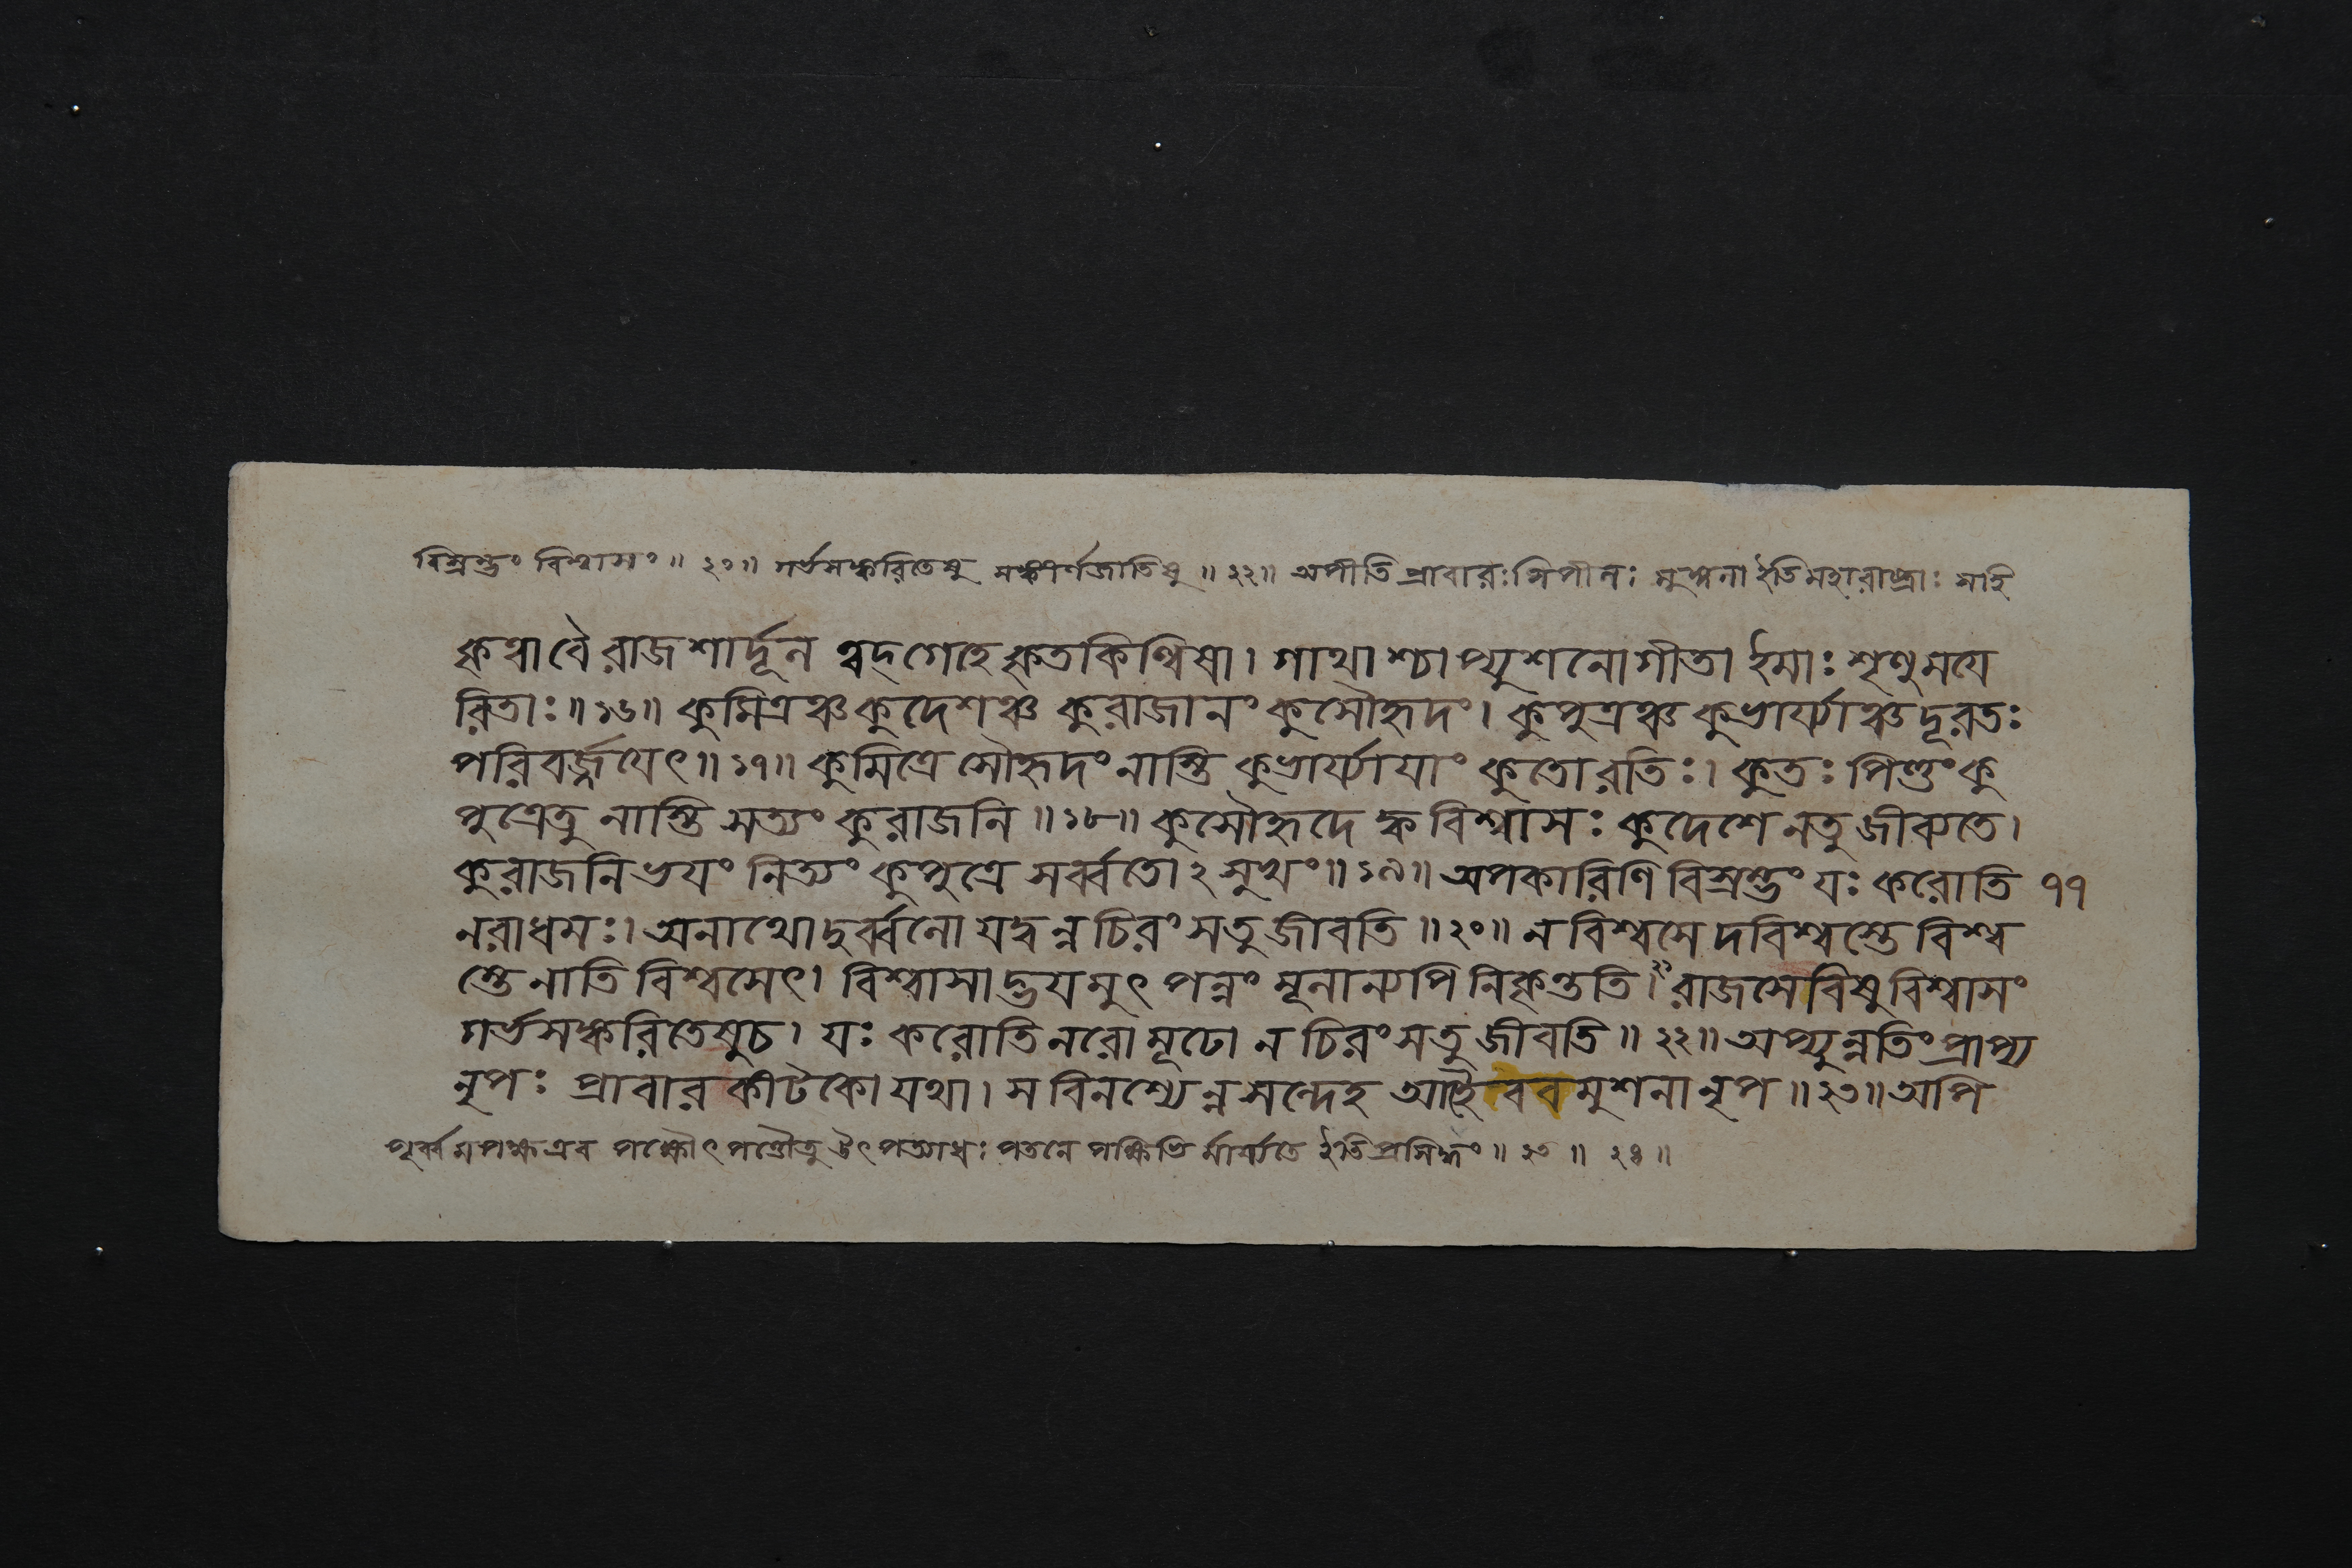 বিস্রম্ভং বিশ্বাসং ॥ ২১॥ গর্ভসঙ্করিতেষু সঙ্কীর্ণজাতিষু ॥ ২২॥ অপীতি প্রাবারঃ পিপীলঃ মুঙ্গলা ইতি মহারাষ্ট্রাঃ সহি
কৃত্বা বৈ রাজশার্দূল ত্বদ্গেহে কৃতকিল্বিষা। গাথাশ্চাপ্যুশনোগীতা ইমাঃ শৃণু ময়ে
রিতাঃ॥১৬॥ কুমিত্রঞ্চ কুদেশঞ্চ কুরাজানং কুসৌহৃদং। কুপুত্রঞ্চ কুভার্য্যাঞ্চ দূরতঃ
পরিবর্জ্জয়েৎ॥১৭॥ কুমিত্রে সৌহৃদং নাস্তি কুভার্য্যায়াং কুতো রতিঃ। কুতঃ পিণ্ডং কু
পুত্রেতু নাস্তি সত্যং কুরাজনি ॥১৮॥ কুসৌহৃদে ক্ব বিশ্বাসঃ কুদেশে নতু জীব্যতে।
কুরাজনি ভয়ং নিত্যং কুপুত্রে সর্ব্বতোঽসুখং॥১৯॥ অপকারিণি বিস্রম্ভং যঃ করোতি ৭৭
নরাধমঃ। অনাথো দুর্ব্বলো যদ্বন্ন চিরং সতু জীবতি ॥২০॥ ন বিশ্বসেদবিশ্বস্তে বিশ্ব
স্তে নাতি বিশ্বসেৎ। বিশ্বাসাদ্ভয়মুৎপন্নং মূলান্যপি নিকৃন্ততি।২১ রাজসেবিষু বিশ্বাসং
গর্ভসঙ্করিতেষু চ। যঃ করোতি নরো মূঢো ন চিরং সতু জীবতি ॥ ২২॥ অপ্যুন্নতিং প্রাপ্য
নৃপঃ প্রাবারকীটকো যথা। স বিনশ্যেন্ন সন্দেহ আহৈবমুশনা নৃপ ॥২৩॥ অপি
পূর্ব্বমপক্ষ এব ইতি প্রসিদ্ধং ॥ ২৩ ॥ ২৪ ॥